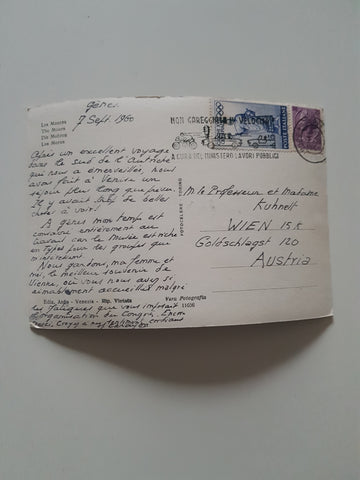 Gênes
7 Sept. 1960
Les Maures
The Moors
Die Mohren
Los Moros
Après un excellent voyage
dans le sud de l'Autriche
qui nous a émerveillé, nous
avons fait à Venise un
séjour plus long que prévu.
Il y avait trop de belles
choses à voir!
A Gênes mon temps est
consacré entièrement au
travail car le Musée est riche
en types pour les groupes qui
m'intéressent.
Nous gardons, ma femme et
moi, le meilleur souvenir de
Vienne, où vous nous avez si
aimablement accueillis malgré
les fatigues que vous imposait
l'organisation du Congrès. Encore
NON GAREGGIATE IN VELOCITÀ
A CURA DEL MINISTERO LAVORI PUBBLICI
POSTE ITALIANE
M. le Professeur et Madame
Kühnelt
WIEN 15
Goldschlagst 120
Austria
Ediz. Ardo - Venezia - Rip. Vietata
Vera Fotografia